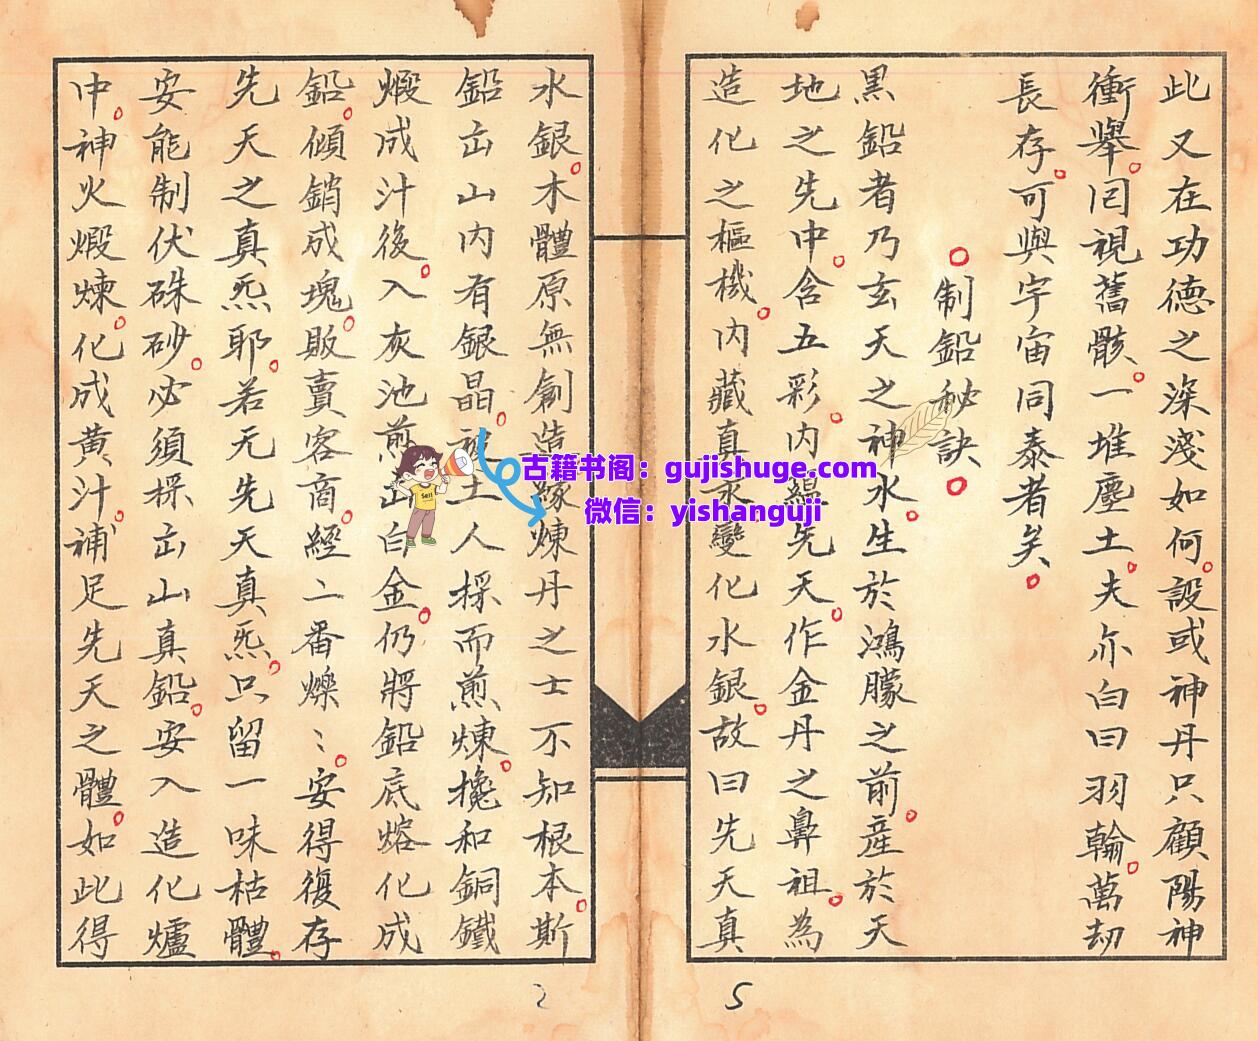 此又在功德之深淺如何設或神丹只顧陽神
衝舉回視舊骸一堆塵土夫亦白日羽翰萬劫
長存可與宇宙同泰者矣
制鉛秘訣
黑鉛者乃玄天之神水生於鴻朦之前產於天
地之先中含五彩內縕先天作金丹之鼻祖為
造化之樞機內藏真汞變化水銀故曰先天真
水銀木體原無創造緣煉丹之士不知根本斯
鉛出山內有銀晶被土人採而煎煉攙和銅鐵
煅成汁後入灰池煎出白金仍將鉛底熔化成
鉛傾銷成塊販賣客商經二番爍〻安得復存
先天之真炁耶若无先天真炁只留一味枯體
安能制伏硃砂必須採出山真鉛安入造化爐
中神火煅煉化成黃汁補足先天之體如此得
古籍书阁：gujishuge.com
微信：yishanguji
Sell
2
5